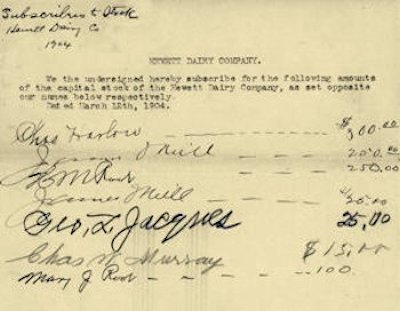 Subscribers to Stock
Hewett Dairy Co
1904
HEWETT DAIRY COMPANY.
We the undersigned hereby subscribe for the following amounts
of the capital stock of the Hewett Dairy Company, as set opposite
our names below respectively.
Dated March 12th, 1904.
Chas Harlow $300.00
James O'Neill 250.00
Root 250.00
James Neill 25.00
Geo, L Jacques 25,00
Chas W Murray $15.00
Mary J Root 100.